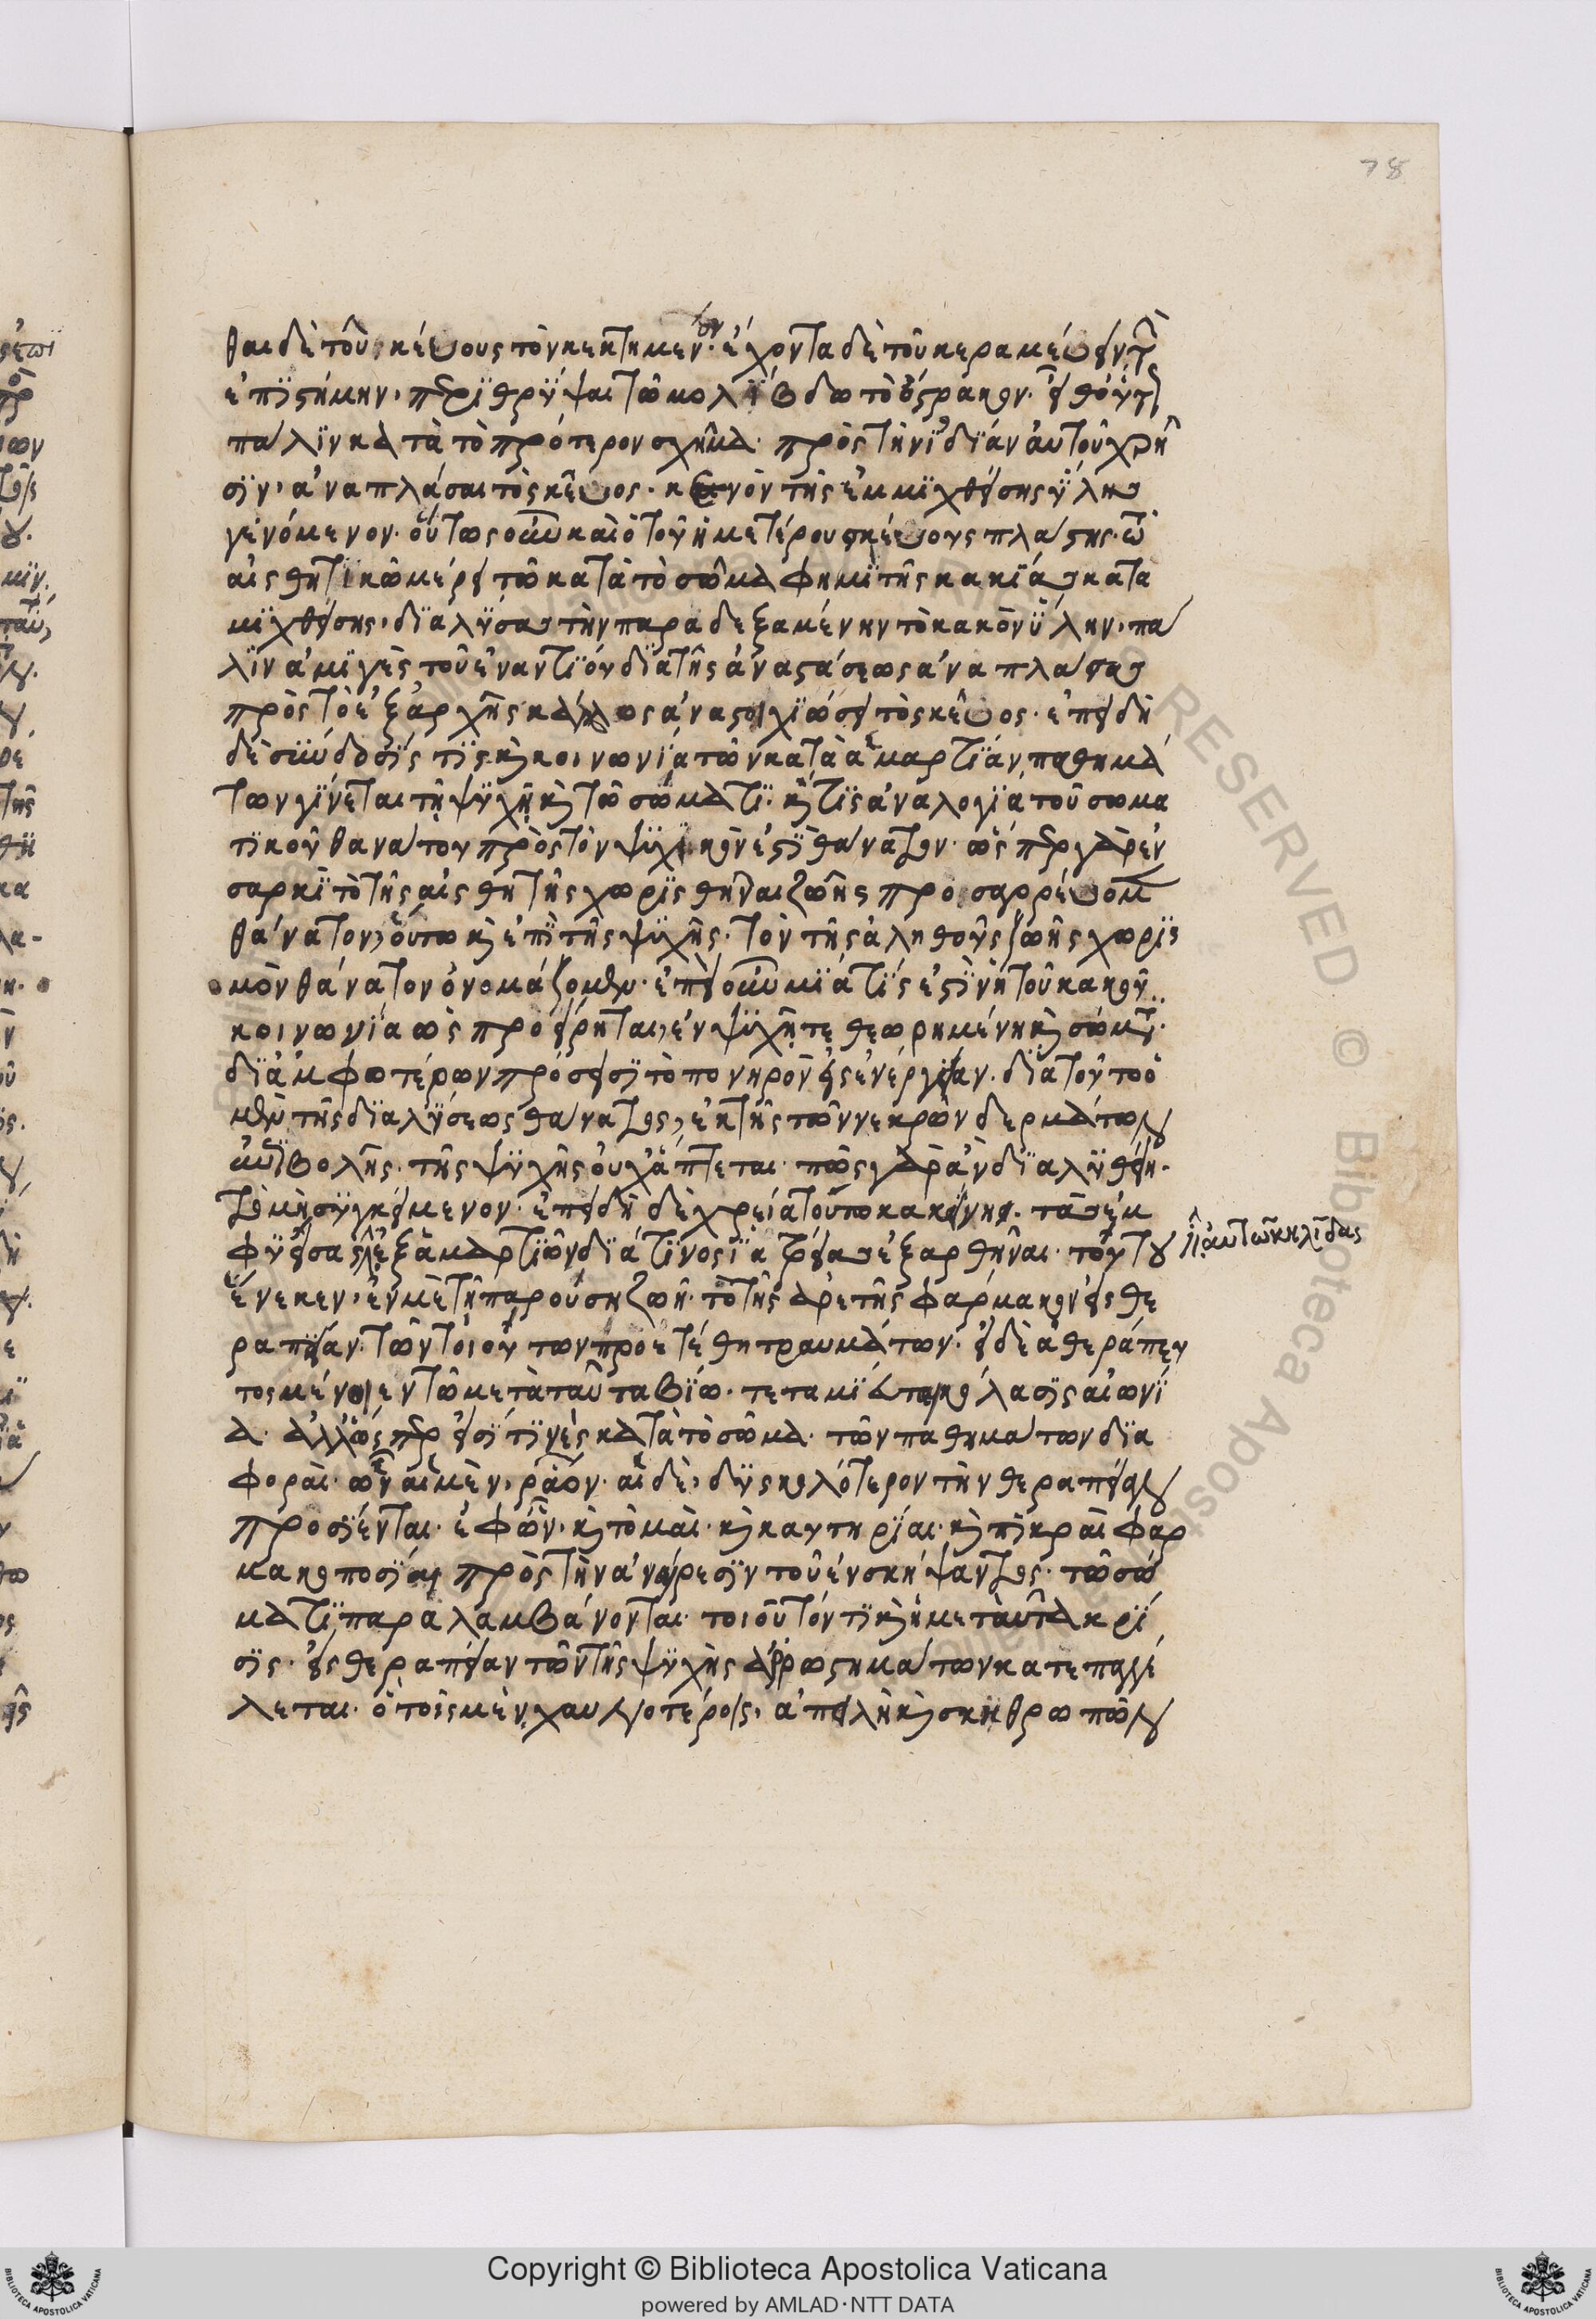 78
θαι δὲ τοῦ σκέυους τὸν κεκτημένον· ἔχοντα δὲ τοῦ κεραμέυειν τὴν
ἐπϊστήμην, περϊθρύψαι τῶ μολΐβδω τὸ ὄστρακον· εἶθ' οὕτως
πάλϊν κατὰ τὸ πρότερον σχῆμα· πρὸς τὴν ϊδϊαν ἀυτοῦ χρῆ
σϊν, ἀναπλάσαι τὸ σκεῦος· κενὸν τῆς ἐμμϊχθείσης ὕλης
γενόμενον· οὕτως οὖν καὶ ὁ τοῦ ἡμετέρου σκέυους πλάστης· τῶ
αἰσθητϊκῶ μέρει τῶ κατὰ τὸ σῶμα φημϊ τῆς κακϊάς κατα
μϊχθείσης, δϊαλύσας τὴν παραδεξαμένην τὸ κακὸν ὕλην, πά
λϊν ἀμϊγὲς τοῦ ἐναντϊου δϊὰ τῆς ἀναστάσεως ἀναπλάσας
πρὸς τὸ ἐξἀρχῆς κάλλος ἀναστοιχϊώσει τὸ σκεῦος· ἐπειδὴ
δὲ σύνδεσϊς τϊς καὶ κοινωνϊα τῶν κατὰ ἁμαρτϊάν, παθημά
των γϊνεται τῆ ψυχῆ καὶ τῶ σώματϊ· καὶ τϊς ἀναλογϊα τοῦ σωμα
τϊκοῦ θανάτου πρὸς τὸν ψϋχϊκόν ἐστϊ θάνατον· ὥσπερ γὰρ ἐν
σαρκϊ τὸ τῆς αἰσθητῆς χωρϊσθῆναι ζωῆς προσαγορέυομεν
θάνατον, οὕτω καὶ ἐπϊ τῆς ψϋχῆς· τὸν τῆς ἀληθοῦς ζωῆς χωρϊσ
μὸν θάνατον ὀνομάζομεν· ἐπεὶ οὖν μϊά τϊς ἐστϊν ἡ τοῦ κακοῦ
κοινωνϊα ὡς προείρηται, ἐν ψϋχῆ τε θεωρημένη καὶ σώματι·
δϊ ἀμφοτέρων πρόσεισϊ τὸ πονηρὸν εἰς ἐνέργειαν· δϊὰ τοῦτο ὁ
μὲν τῆς δϊαλύσεως θάνατος, ἐκ τῆς τῶν νεκρῶν δερμάτων
ἐπϊβολῆς· τῆς ψυχῆς οὐχ ἅπτεται· πῶς γὰρ ἂν δϊαλυθείη·
τὸ μὴ συγκείμενον· ἐπειδὴ δὲ χρεία τοῦ κακείνης· τὰς ἐμ
φυείσας ἐξ ἁμαρτϊῶν δϊά τϊνος ϊατρείας ἐξαρθῆναι· τούτου
αὐτῶν κηλῖδας
ἕνεκεν, ἐν μὲν τῆ παρούση ζωῆ· τὸ τῆς ἀρετῆς φάρμακον εἰς θε
ραπείαν· τῶν τοιούτων προετέθη τραυμάτων· εἰ δὲ ἀθεράπευ
τος μένοι, ἐν τῶ μετὰ ταῦτα βϊω· τεταμϊευται κόλασϊς αἰωνϊ
α· ἀλλ' ὥσπερ εἰσϊ τϊνὲς κατὰ τὸ σῶμα· τῶν παθημάτων δϊα
φοραὶ· ὧν αἱ μὲν, ῥᾶον· αἱ δὲ, δυσκολότερον τὴν θεραπείαν
προσϊενται· ἐφ' ὧν, καὶ τομαὶ· καὶ καυτηρϊαι· καὶ πϊκραὶ φαρ
μακοποσϊαι πρὸς τὴν ἀναίρεσϊν τοῦ ἐνσκήψαντος· τῶ σώ
ματϊ παραλαμβάνονται· τοιοῦτόν τϊ καὶ ἡ μετὰ ταῦτα κρϊ
σϊς· εἰς θεραπείαν τῶν τῆς ψυχῆς ἀρρωστημάτων κατεπαγγέ
λεται· ὃ τοῖς μὲν χαυνοτέροις, ἀπειλὴ καὶ σκυθρωπῶν
Copyright © Biblioteca Apostolica Vaticana
powered by AMLAD·NTT DATA